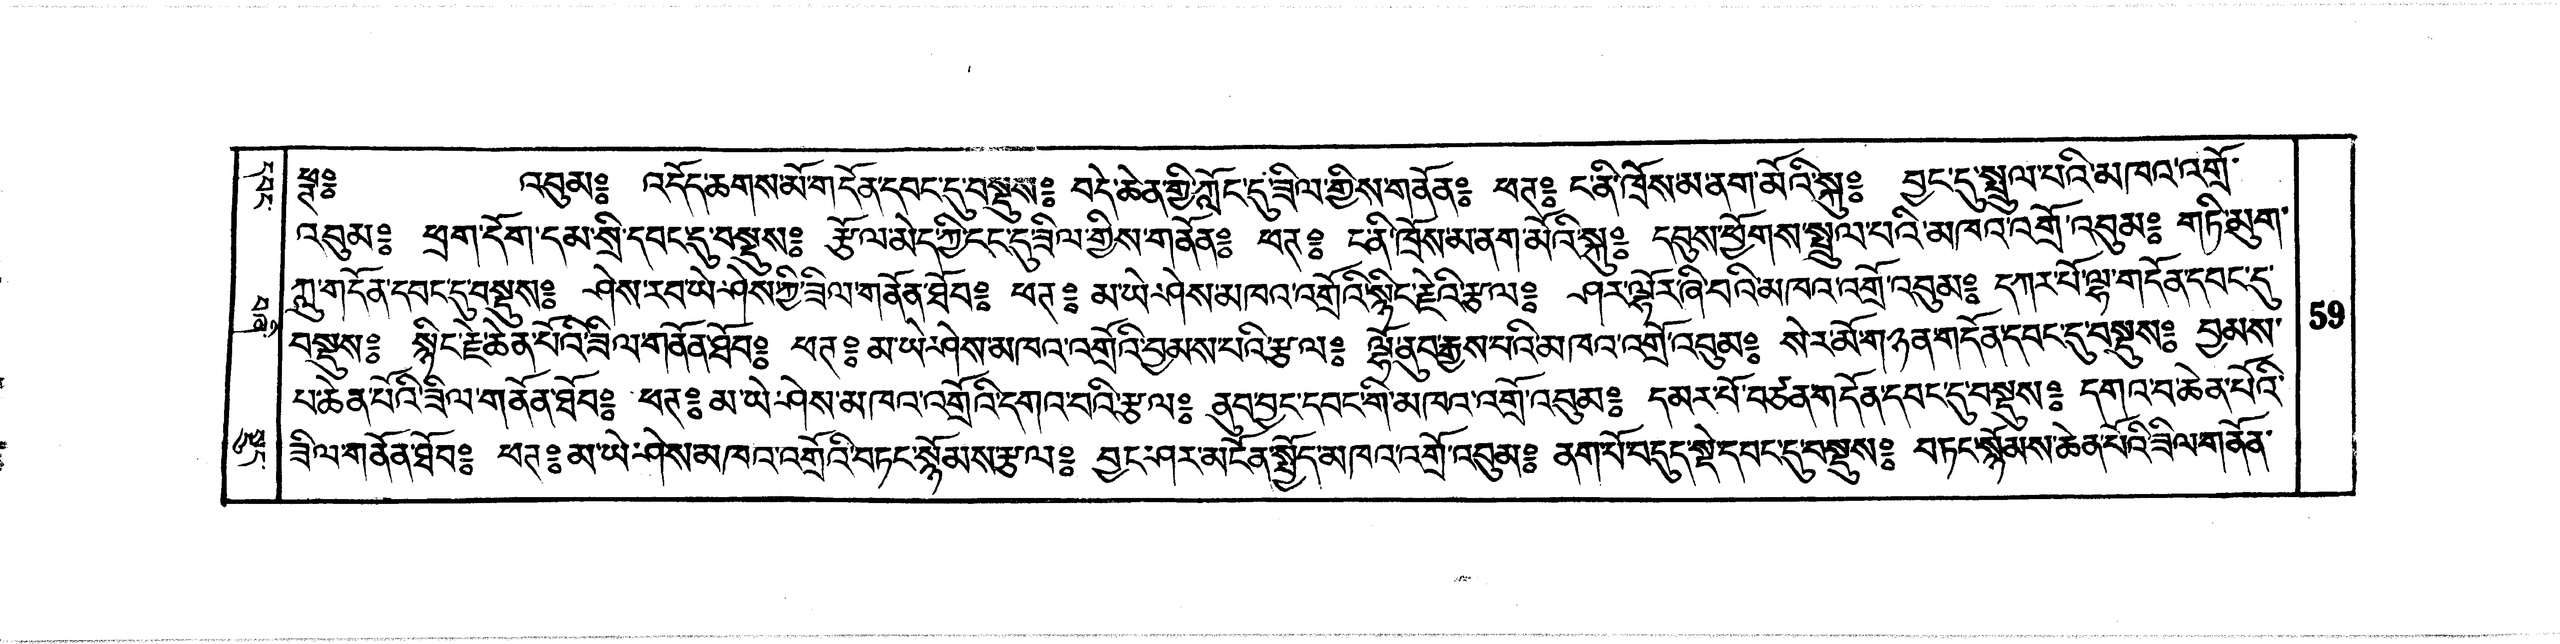 ཕཊ༔ འབུམ༔ འདོད་ཆགས་མོ་གདོན་དབང་དུ་བསྡུས༔ བདེ་ཆེན་གྱི་ཀློང་དུ་ཟིལ་གྱིས་གནོན༔ ཕཊ༔ ང་ནི་ཁྲོས་མ་ནག་མོའི་སྐུ༔ བྱང་དུ་སྤྲུལ་པའི་མཁའ་འགྲོ་
འབུམ༔ ཕྲག་དོག་དམ་སྲི་དབང་དུ་བསྡུས༔ རྩོལ་མེད་ཀྱི་ངང་དུ་ཟིལ་གྱིས་གནོན༔ ཕཊ༔ ང་ནི་ཁྲོས་མ་ནག་མོའི་སྐུ༔ དབུས་ཕྱོགས་སྤྲུལ་པའི་མཁའ་འགྲོ་འབུམ༔ གཏི་མུག་
ཀླུ་གདོན་དབང་དུ་བསྡུས༔ ཤེས་རབ་ཡེ་ཤེས་ཀྱི་ཟིལ་གནོན་ཐོབ༔ ཕཊ༔ མ་ཡེ་ཤེས་མཁའ་འགྲོའི་སྙིང་རྗེའི་རྩལ༔ ཤར་ལྷོར་ཞི་བའི་མཁའ་འགྲོ་འབུམ༔ དཀར་པོ་ལྷ་གདོན་དབང་དུ་
བསྡུས༔ སྙིང་རྗེ་ཆེན་པོའི་ཟིལ་གནོན་ཐོབ༔ ཕཊ༔ མ་ཡེ་ཤེས་མཁའ་འགྲོའི་བྱམས་པའི་རྩལ༔ ལྷོ་ནུབ་རྒྱས་པའི་མཁའ་འགྲོ་འབུམ༔ སེར་མོ་གཉན་གདོན་དབང་དུ་བསྡུས༔ བྱམས་
པ་ཆེན་པོའི་ཟིལ་གནོན་ཐོབ༔ ཕཊ༔ མ་ཡེ་ཤེས་མཁའ་འགྲོའི་དགའ་བའི་རྩལ༔ ནུབ་བྱང་དབང་གི་མཁའ་འགྲོ་འབུམ༔ དམར་པོ་བཙན་གདོན་དབང་དུ་བསྡུས༔ དགའ་བ་ཆེན་པོའི་
ཟིལ་གནོན་ཐོབ༔ ཕཊ༔ མ་ཡེ་ཤེས་མཁའ་འགྲོའི་བཏང་སྙོམས་རྩལ༔ བྱང་ཤར་མངོན་སྤྱོད་མཁའ་འགྲོ་འབུམ༔ ནག་པོ་བདུད་སྡེ་དབང་དུ་བསྡུས༔ བཏང་སྙོམས་ཆེན་པོའི་ཟིལ་གནོན་
59